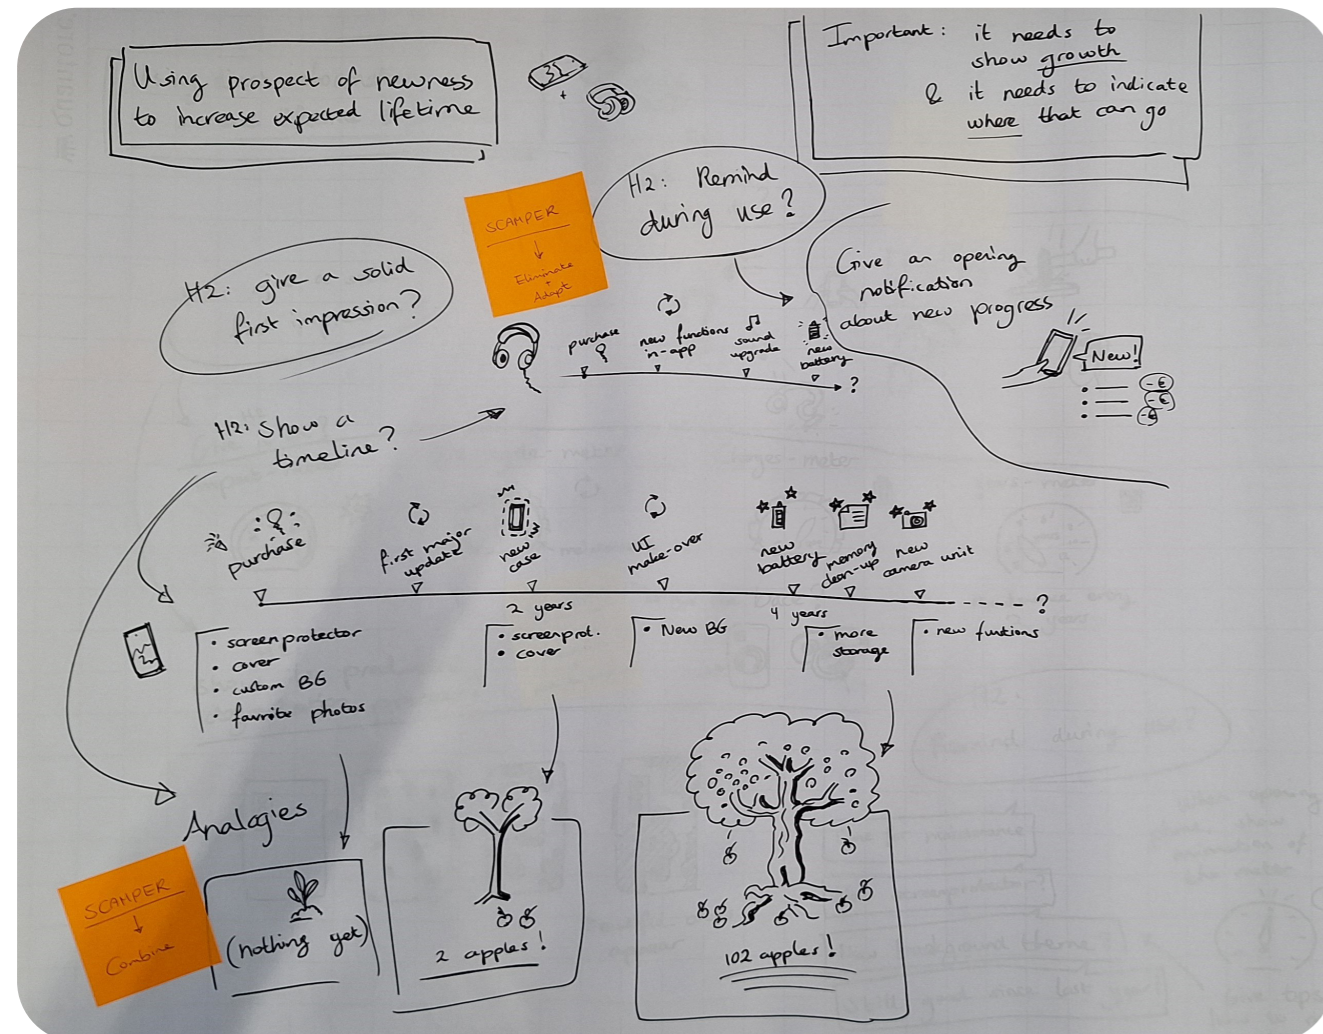 Using prospect of newness
to increase expected lifetime
31
+
Important: it needs to
show growth
& it needs to indicate
where that can go
SCAMPER
Eliminate
+
Adapt
H2: Remind
during use?
Give an opening
notification
about new progress
New!
- €
- €
- €
H2: give a solid
first impression?
purchase
new functions
in-app
sound
upgrade
new
battery
?
H2: Show a
timeline?
purchase
first major
update
new
case
UI
make-over
new
battery
memory
clean-up
new
camera unit
2 years
4 years
?
• screenprotector
• cover
• custom BG
• favrite photos
• screenprot.
• cover
• New BG
• more
storage
• new funtions
Analogies
SCAMPER
Combine
(nothing yet)
2 apples!
102 apples!